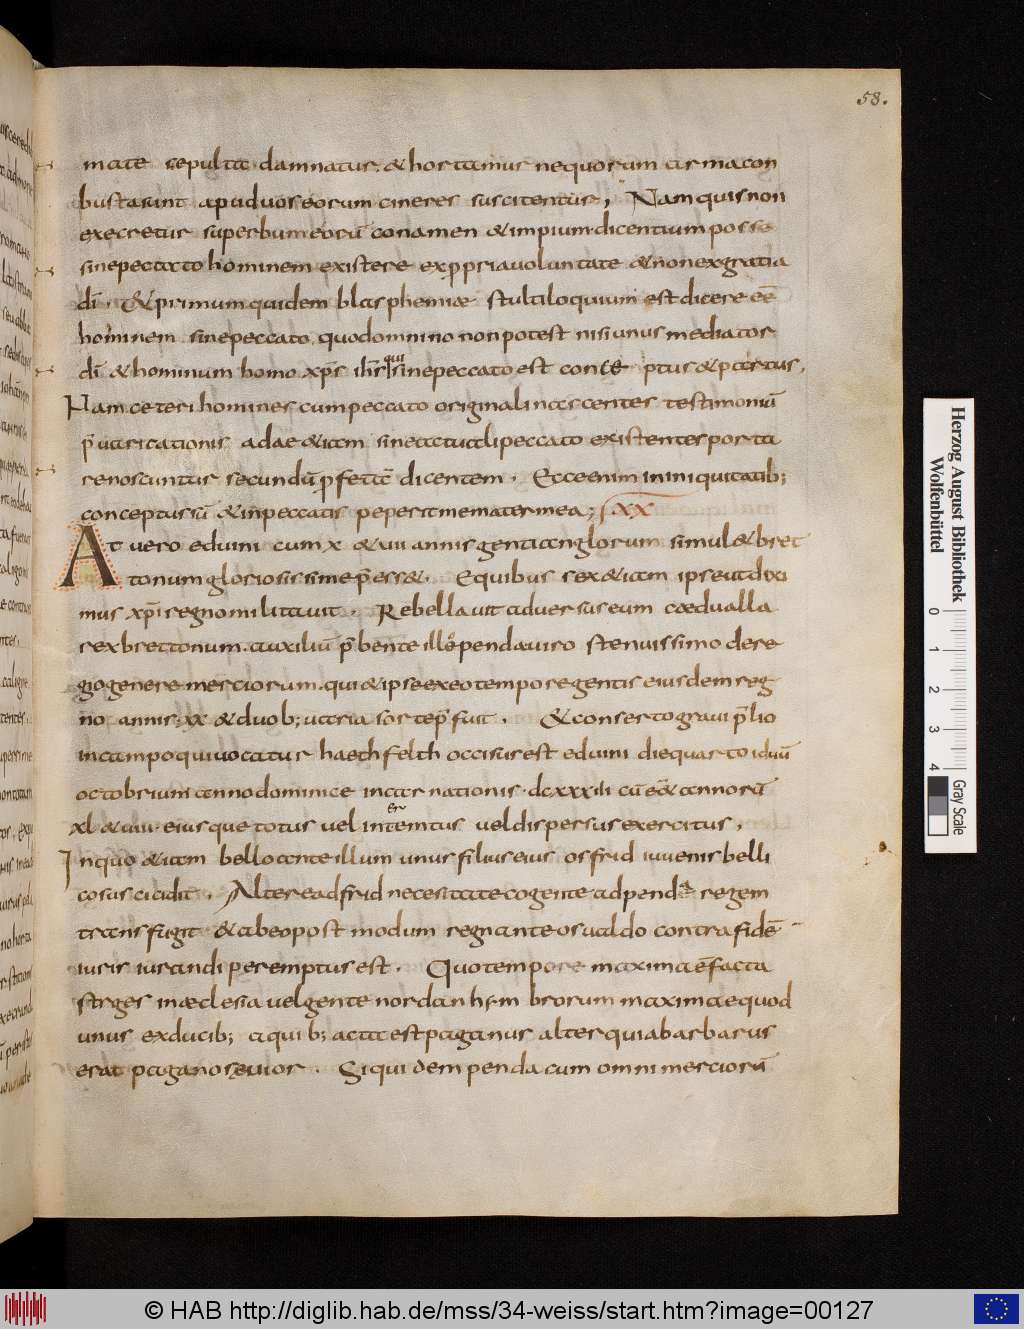 58.
mate sepulta damnatur. & hortamur nequorum arma con
busta sunt apud uos eorum cineres suscitentur; Nam quis non
execretur superbum eorū conamen & impium dicentium posse
sine peccato hominem existere ex ppria uoluntate & non ex gratia
dī. & primum quidem blasphemiae stultiloquium est dicere eē
hominem sine peccato, quod omnino non potest nisi unus mediator
dī & hominum homo xp̄s ih̄s qui sine peccato est conce ptus & partus,
Nam ceteri homines cum peccato originali nascentes testimoniū
p̄uaricationis adae & iam sine actuali peccato existentes porta
re noscuntur secundū p̄fetā dicentem. Ecce enim in iniquitatib;
conceptus sū & in peccatis peperit me mater mea; XX
At uero eduini cum x & uii annis genti anglorum simul & bret
tonum gloriosissime p̄ess&. E quibus sex & iam ipse ut dixi
mus xp̄i regno militauit. Rebellauit aduersus eum cædualla
rex brettonum. auxiliū p̄bente illo penda uiro stenuissimo de re
gio genere merciorum. qui & ipse ex eo tempore gentis eiusdem reg
no annis. xx & duob; uaria sorte p̄fuit. & conserto graui p̄lio
in campo qui uocatur haethfelth occisus est eduini die quarto iduū
octobrium anno dominice incarnationis. dcxxxiii cū eēt annorū
xl & uiii. eiusque totus uel interemtus uel dispersus exercitus,
In quo & iam bello ante illum unus filius eius osfrid iuuenis belli
cosus cicidit. Alter eadfrid necessitate cogente ad pendā regem
transfugit & ab eo post modum regnante osualdo contra fidē
iuris iurandi peremptus est. Quo tempore maxima ē facta
strges in æclesia uel gente nordanhymbrorum maxima e quod
unus ex ducib; a quib; acta est paganus alter quia barbarus
erat pagano seuior. Siquidem penda cum omni merciorū
Herzog August Bibliothek
Wolfenbüttel
0 1 2 3 4
Gray Scale
© HAB http://diglib.hab.de/mss/34-weiss/start.htm?image=00127